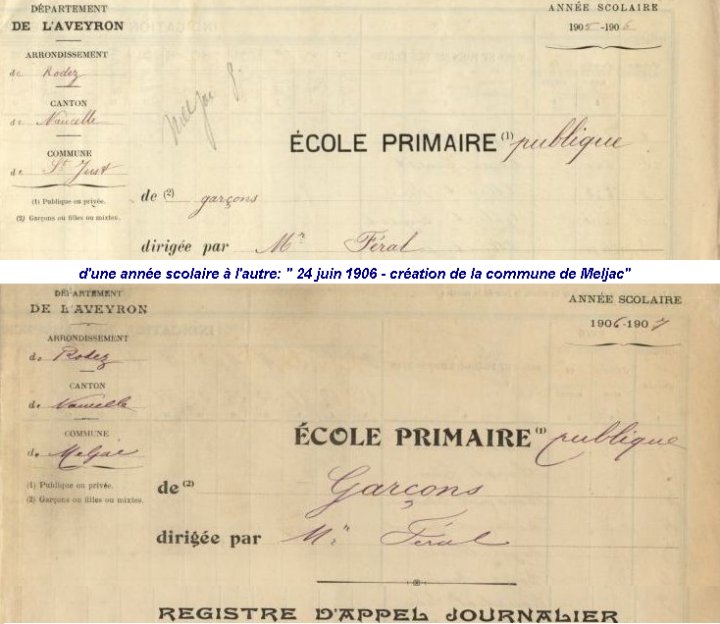 DÉPARTEMENT
DE L'AVEYRON
ARRONDISSEMENT
de Rodez
CANTON
de Naucelle
COMMUNE
de St Just
(1) Publique ou privée.
(2) Garçons ou filles ou mixtes.
Meljac g.
ANNÉE SCOLAIRE
1905-1906
ÉCOLE PRIMAIRE (1) publique
de (2) garçons
dirigée par Mr Féral
d'une année scolaire à l'autre: " 24 juin 1906 - création de la commune de Meljac"
DÉPARTEMENT
DE L'AVEYRON
ARRONDISSEMENT
de Rodez
CANTON
de Naucelle
COMMUNE
de Meljac
(1) Publique ou privée.
(2) Garçons ou filles ou mixtes.
ANNÉE SCOLAIRE
1906-1907
ÉCOLE PRIMAIRE (1) publique
de (2) Garçons
dirigée par Mr Féral
REGISTRE D'APPEL JOURNALIER